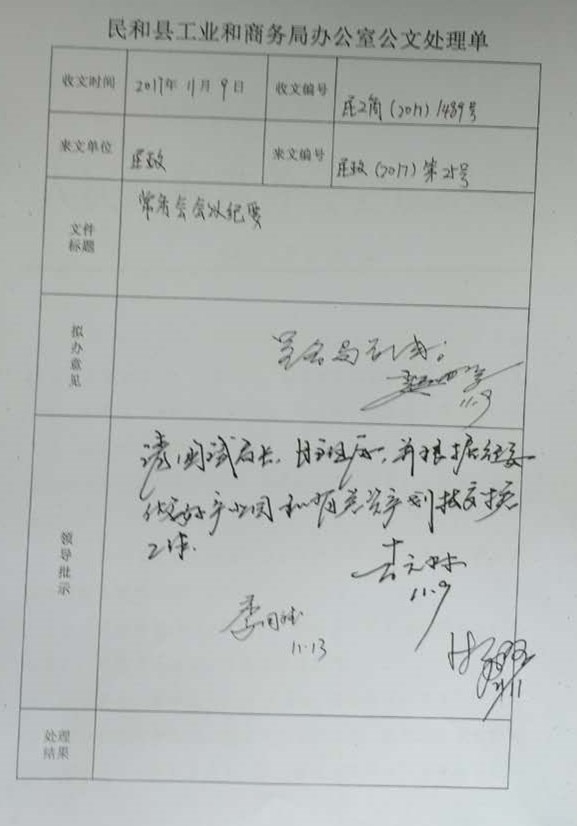 民和县工业和商务局办公室公文处理单
收文时间 2017年11月9日 收文编号 民工商(2017)1489号
来文单位 民政 来文编号 民政(2017)第25号
文件标题 常务会会议纪要
拟办意见
11.9
领导批示
请国斌局长、
并根据纪要
产业园和有关资产划拨交接
工作.
11.9
李国斌
11.13
11.11
处理结果